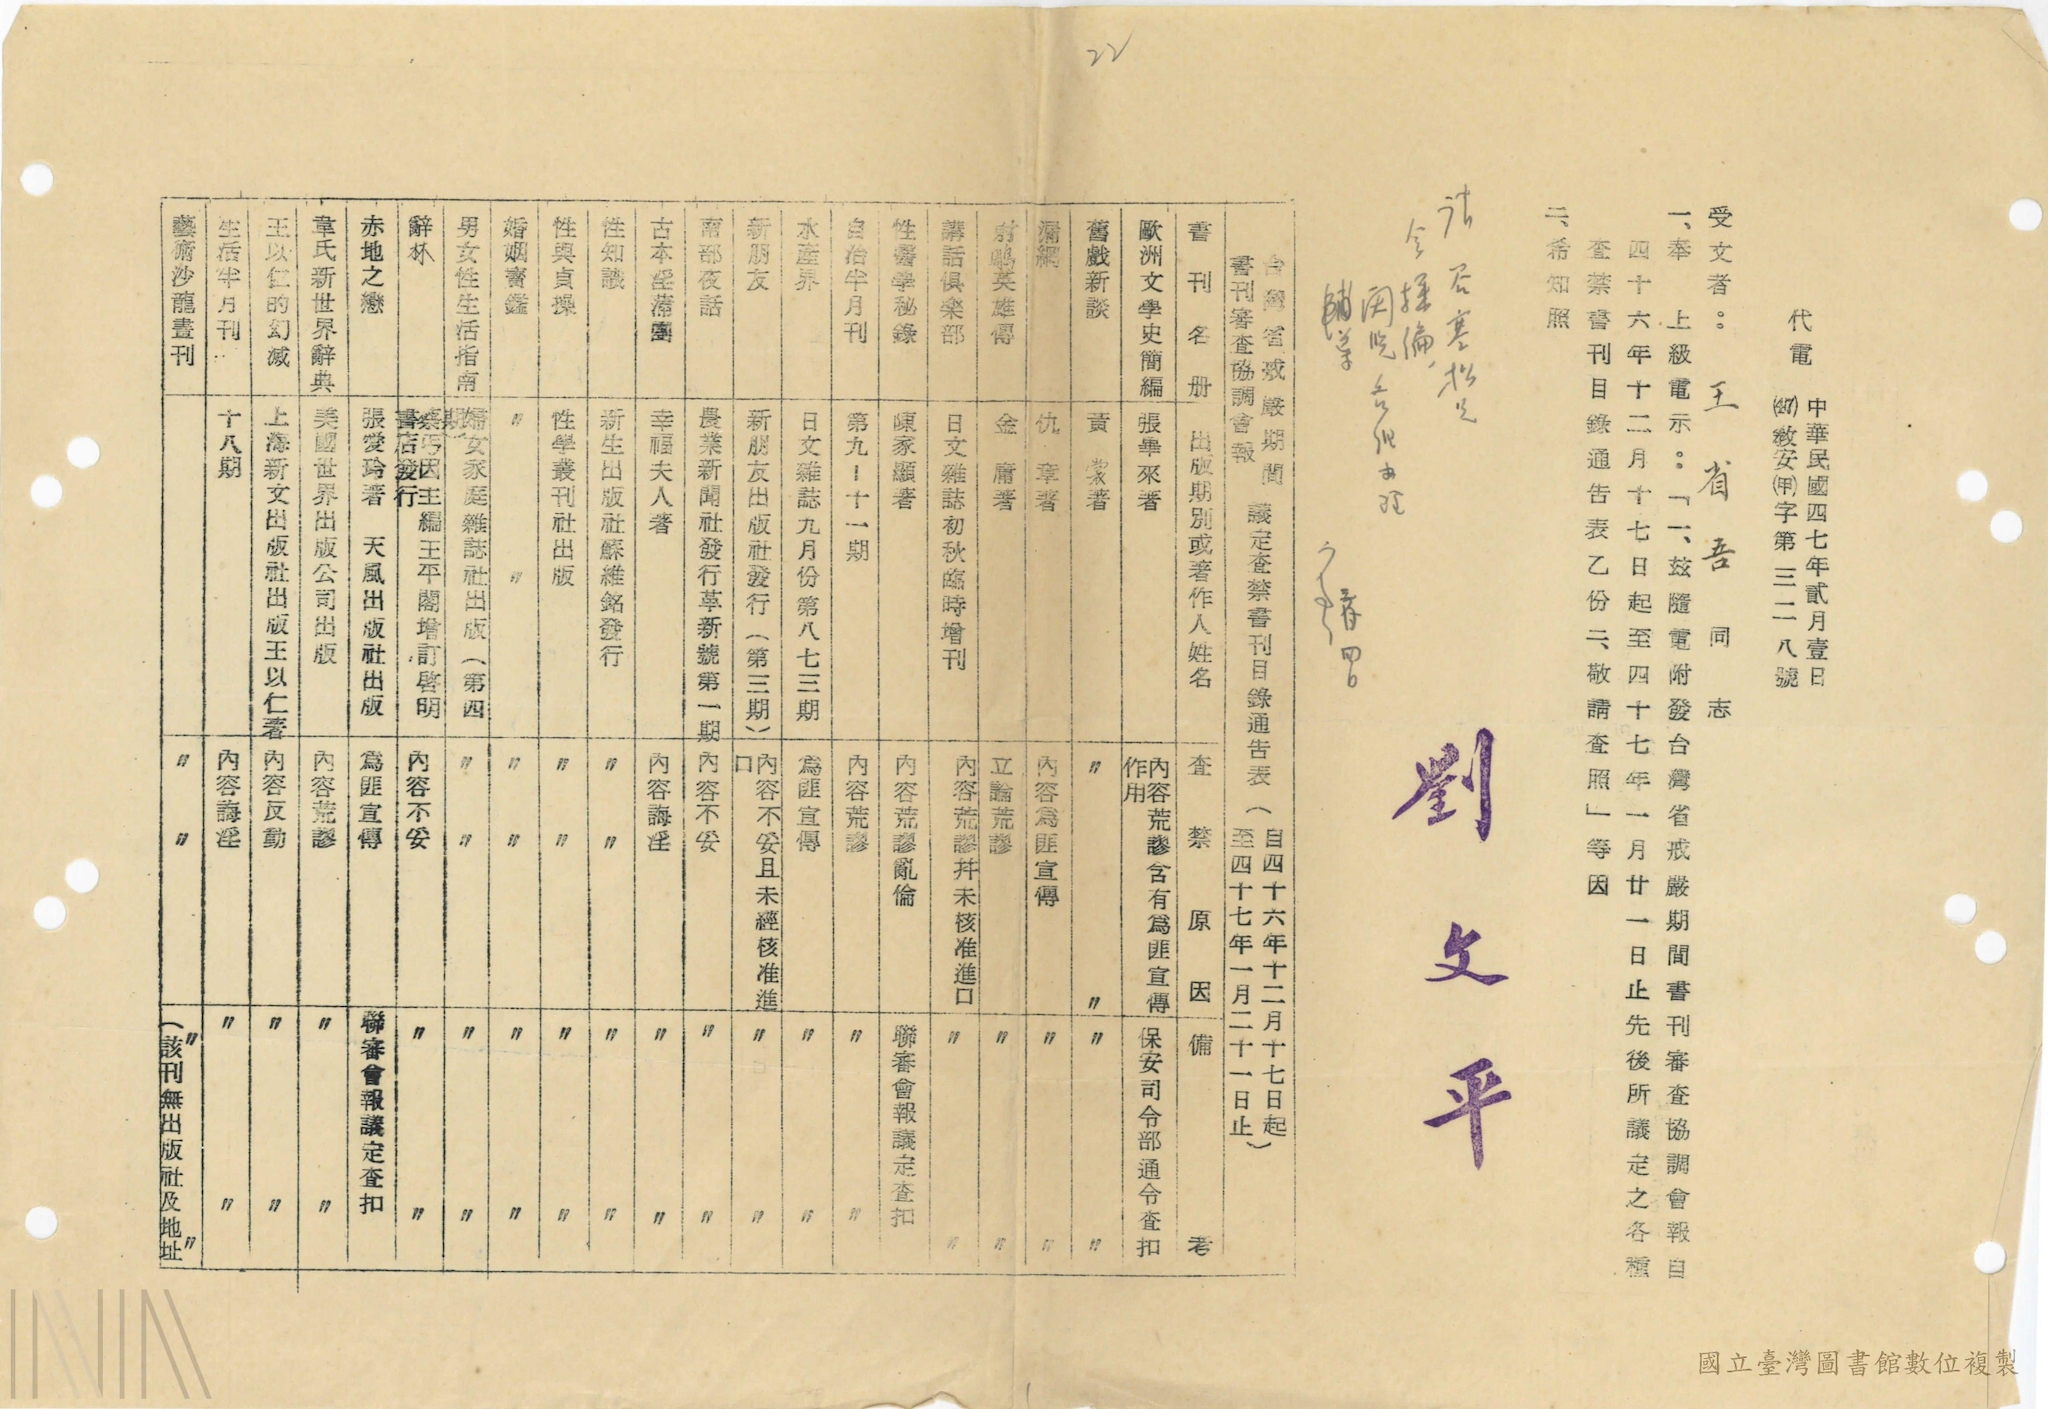 22
代電
中華民國四七年貳月壹日
(47)教安(甲)字第三二八號
受文者：王省吾同志
一、奉上級電示：「一、茲隨電附發台灣省戒嚴期間書刊審查協調會報自
四十六年十二月十七日起至四十七年一月廿一日止先後所議定之各種
查禁書刊目錄通告表乙份二、敬請查照」等因
二、希知照
劉文平
台灣省戒嚴期間書刊審查協調會報 議定查禁書刊目錄通告表（自四十六年十二月十七日起至四十七年一月二十一日止）
書刊名册 出版期別或著作人姓名 查禁原因 備考
歐洲文學史簡編 張畢來著 內容荒謬含有為匪宣傳作用 保安司令部通令查扣
舊戲新談 黃裳著 〃 〃 〃 〃
漏網 仇章著 內容為匪宣傳 〃 〃
射鵰英雄傳 金庸著 立論荒謬 〃 〃
講話俱楽部 日文雜誌初秋臨時增刊 內容荒謬幷未核准進口 〃 〃
性醫學秘錄 陳家顯著 內容荒謬亂倫 聯審會報議定查扣
自治半月刊 第九－十一期 內容荒謬 〃 〃
水產界 日文雜誌九月份第八七三期 為匪宣傳 〃 〃
新朋友 新朋友出版社發行（第三期） 內容不妥且未經核准進口 〃 〃
南部夜話 農業新聞社發行革新號第一期 內容不妥 〃 〃
古本淫蕩寶 幸福夫人著 內容誨淫 〃 〃
性知識 新生出版社蘇維銘發行 〃 〃 〃 〃
性與貞操 性學叢刊社出版 〃 〃 〃 〃
婚姻寶鑑 〃 〃 〃 〃 〃 〃
男女性生活指南 婦女家庭雜誌社出版（第四期） 〃 〃 〃 〃
辭林 蔡丏因主編王平閣增訂啓明書店發行 內容不妥 〃 〃
赤地之戀 張愛玲著 天風出版社出版 為匪宣傳 聯審會報議定查扣
韋氏新世界辭典 美國世界出版公司出版 內容荒謬 〃 〃
王以仁的幻滅 上海新文出版社出版王以仁著 內容反動 〃 〃
生活半月刊 十八期 內容誨淫 〃 〃
藝術沙龍畫刊 〃 〃 〃 〃（該刊無出版社及地址
國立臺灣圖書館數位複製